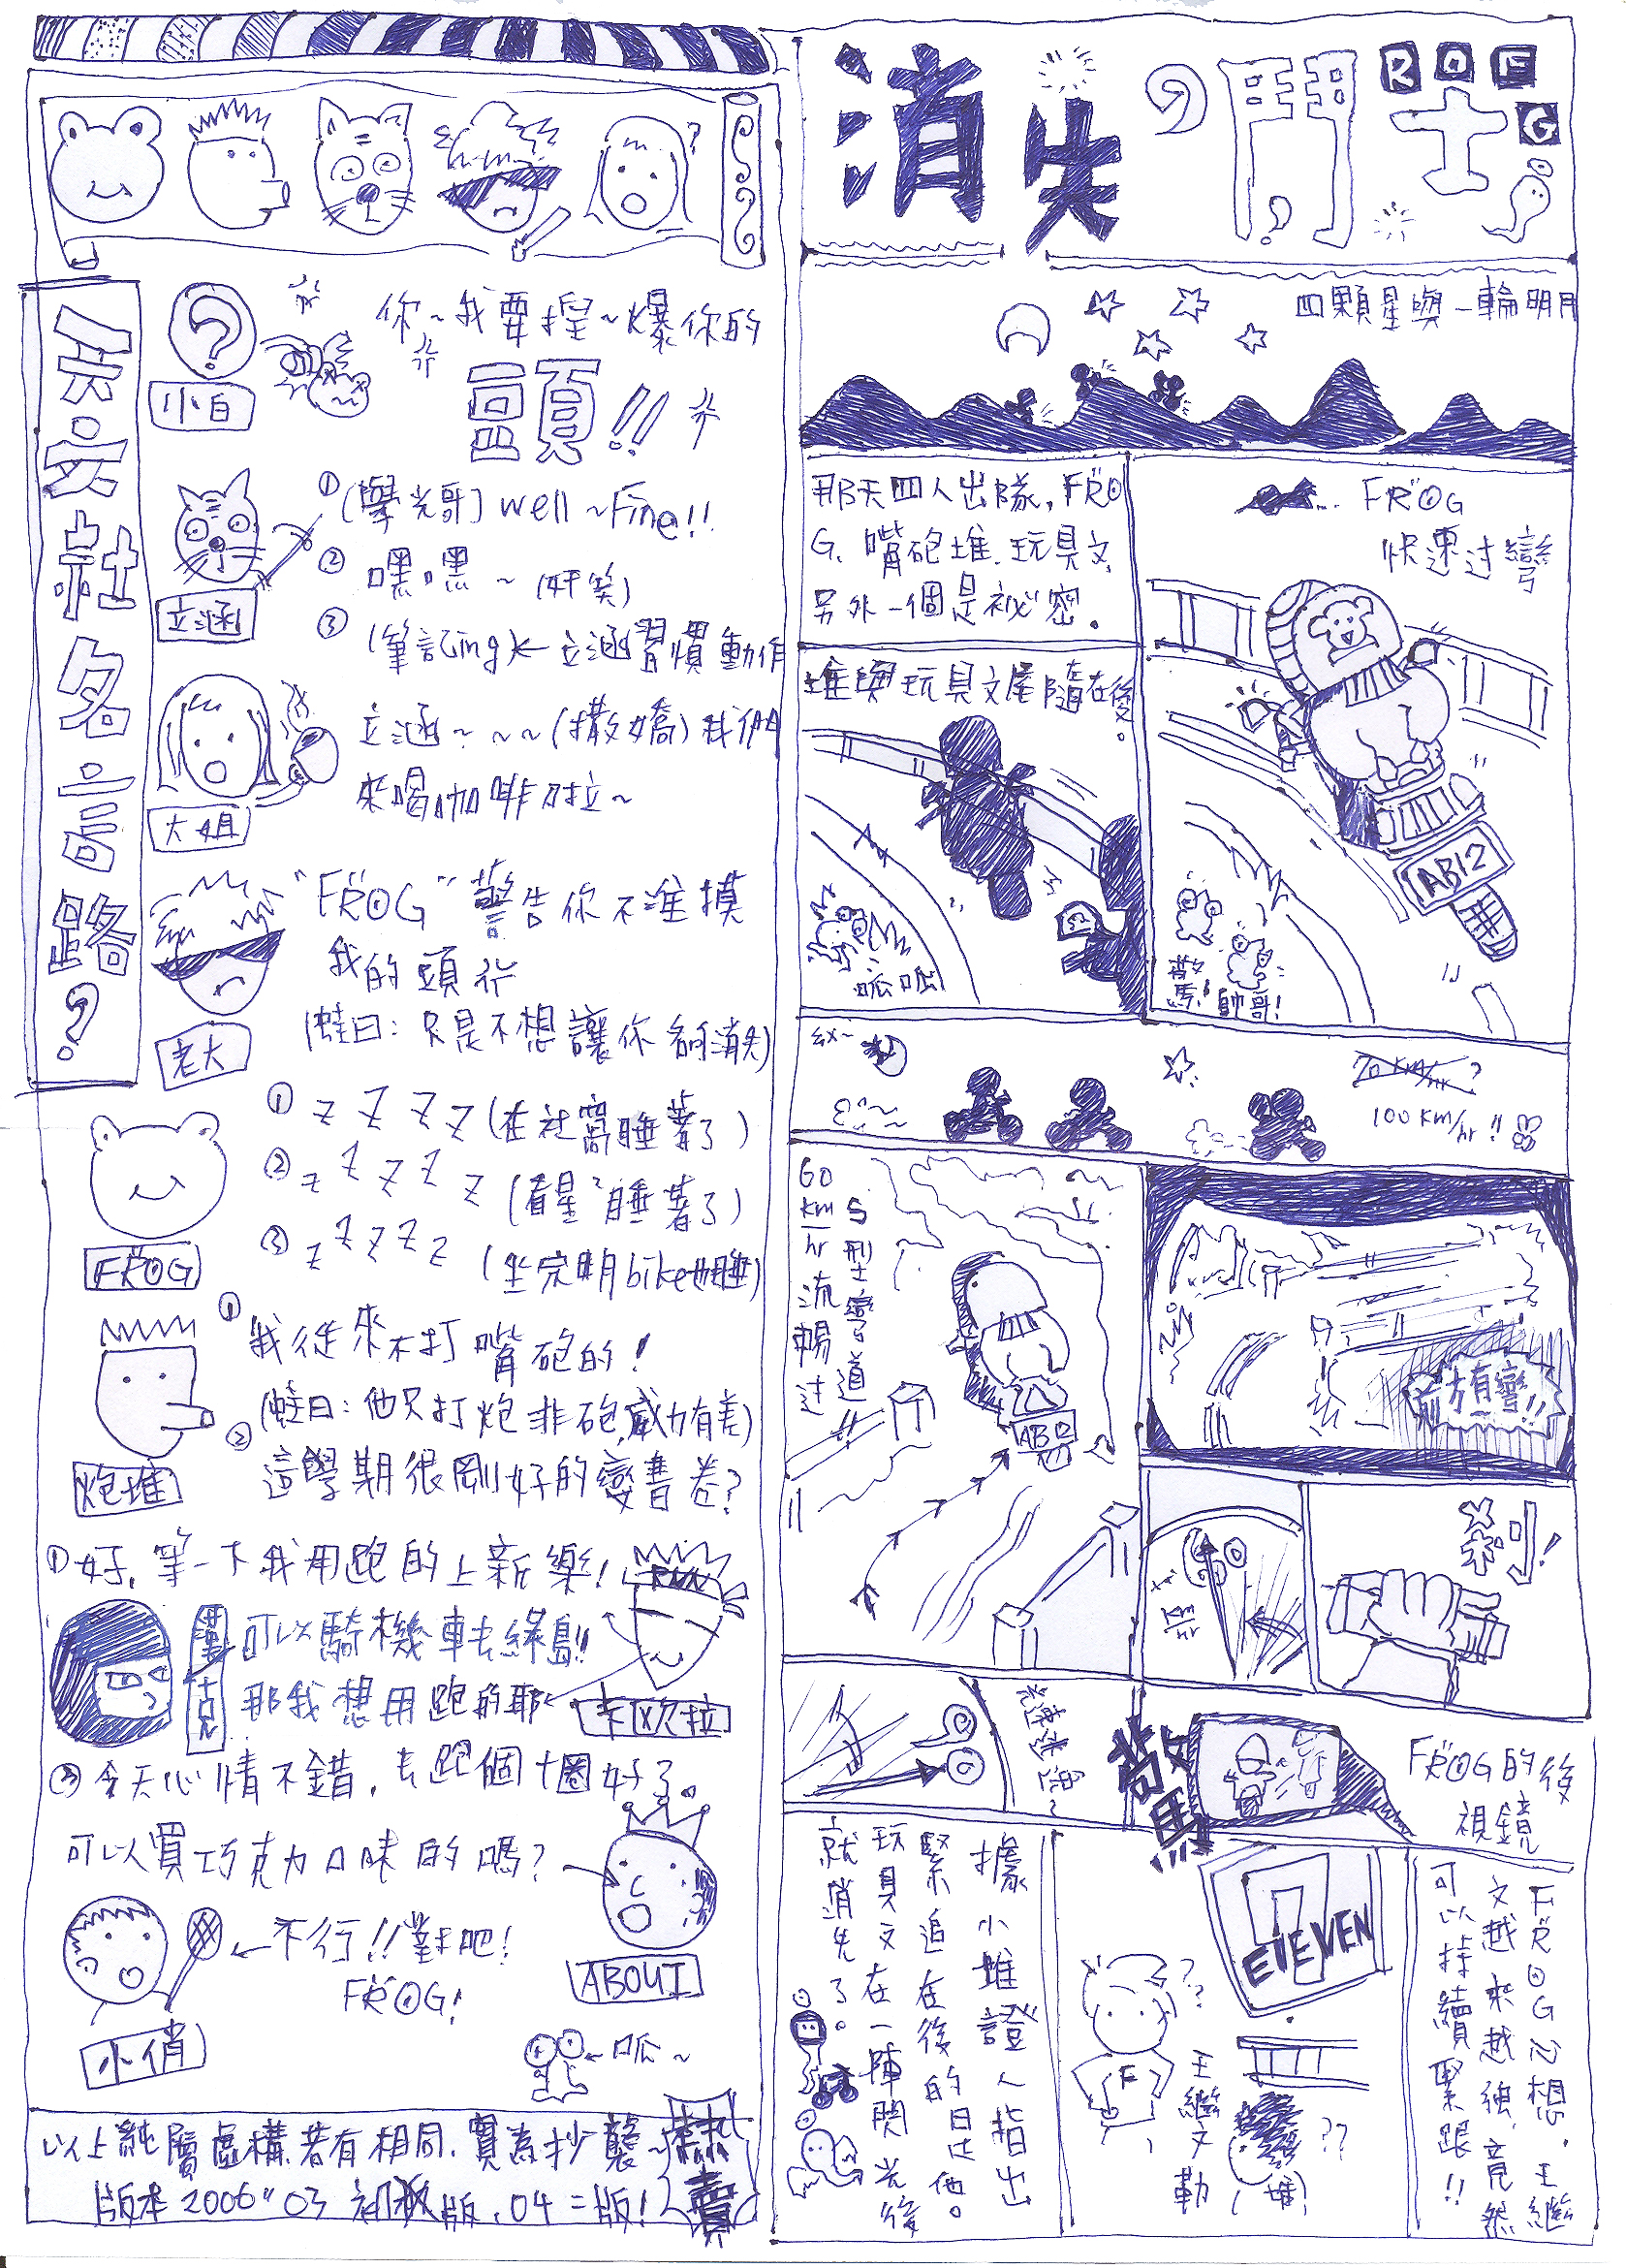 天文社名言路?
小白
你~我要揑~爆你的
頭!!
立涵
①(學光哥) well~Fine!!
② 嘿嘿~(奸笑)
③ (筆記ing)←立涵習慣動作
大姐
立涵~~~(撒嬌)我們
來喝咖啡啦~
老大
"FROG"警告你不准摸
我的頭
(蛙曰:只是不想讓你 消失)
FROG
① z Z Z Z (在社窩睡著了)
② z Z Z Z Z (看星星睡著了)
③ z Z Z Z Z (坐完明bike也睡)
炮堆
① 我從來不打嘴砲的!
(蛙曰:他只打炮非砲,威力有差)
② 這學期很剛好的變書卷?
① 好,等一下我用跑的上新樂!
RUN
可以騎機車去綠島!!
那我想用跑的耶
卡欧拉
③ 今天心情不錯,去跑個十圈好了。
可以買巧克力口味的嗎?
ABOUI
不行!!對吧!
FROG!
小俏
呱~
以上純屬虛構,若有相同,實為抄襲~
版本2006"03 初版,04二版!
禁賣
消失の鬥士
R O F G
四顆星與一輪明月
那天四人出隊,FRO
G、嘴砲堆、玩具文,
另外一個是祕密.
FROG
快速过彎
AB12
驚! 帥哥!
堆與玩具文尾隨在後。
呱呱
70 km/hr?
100 km/hr!!
60 km/hr 流暢过
S型彎道!!
AB12
前方有彎!!
剎!
驚
FROG的後
視鏡
FROG心想,王繼
文越來越強,竟然
可以持續緊跟!!
ELEVEN
??
F
王繼文勒
??
(堆)
據小堆證人指出
緊追在後的目送他。
玩具文在一陣閃光後
就消失了。